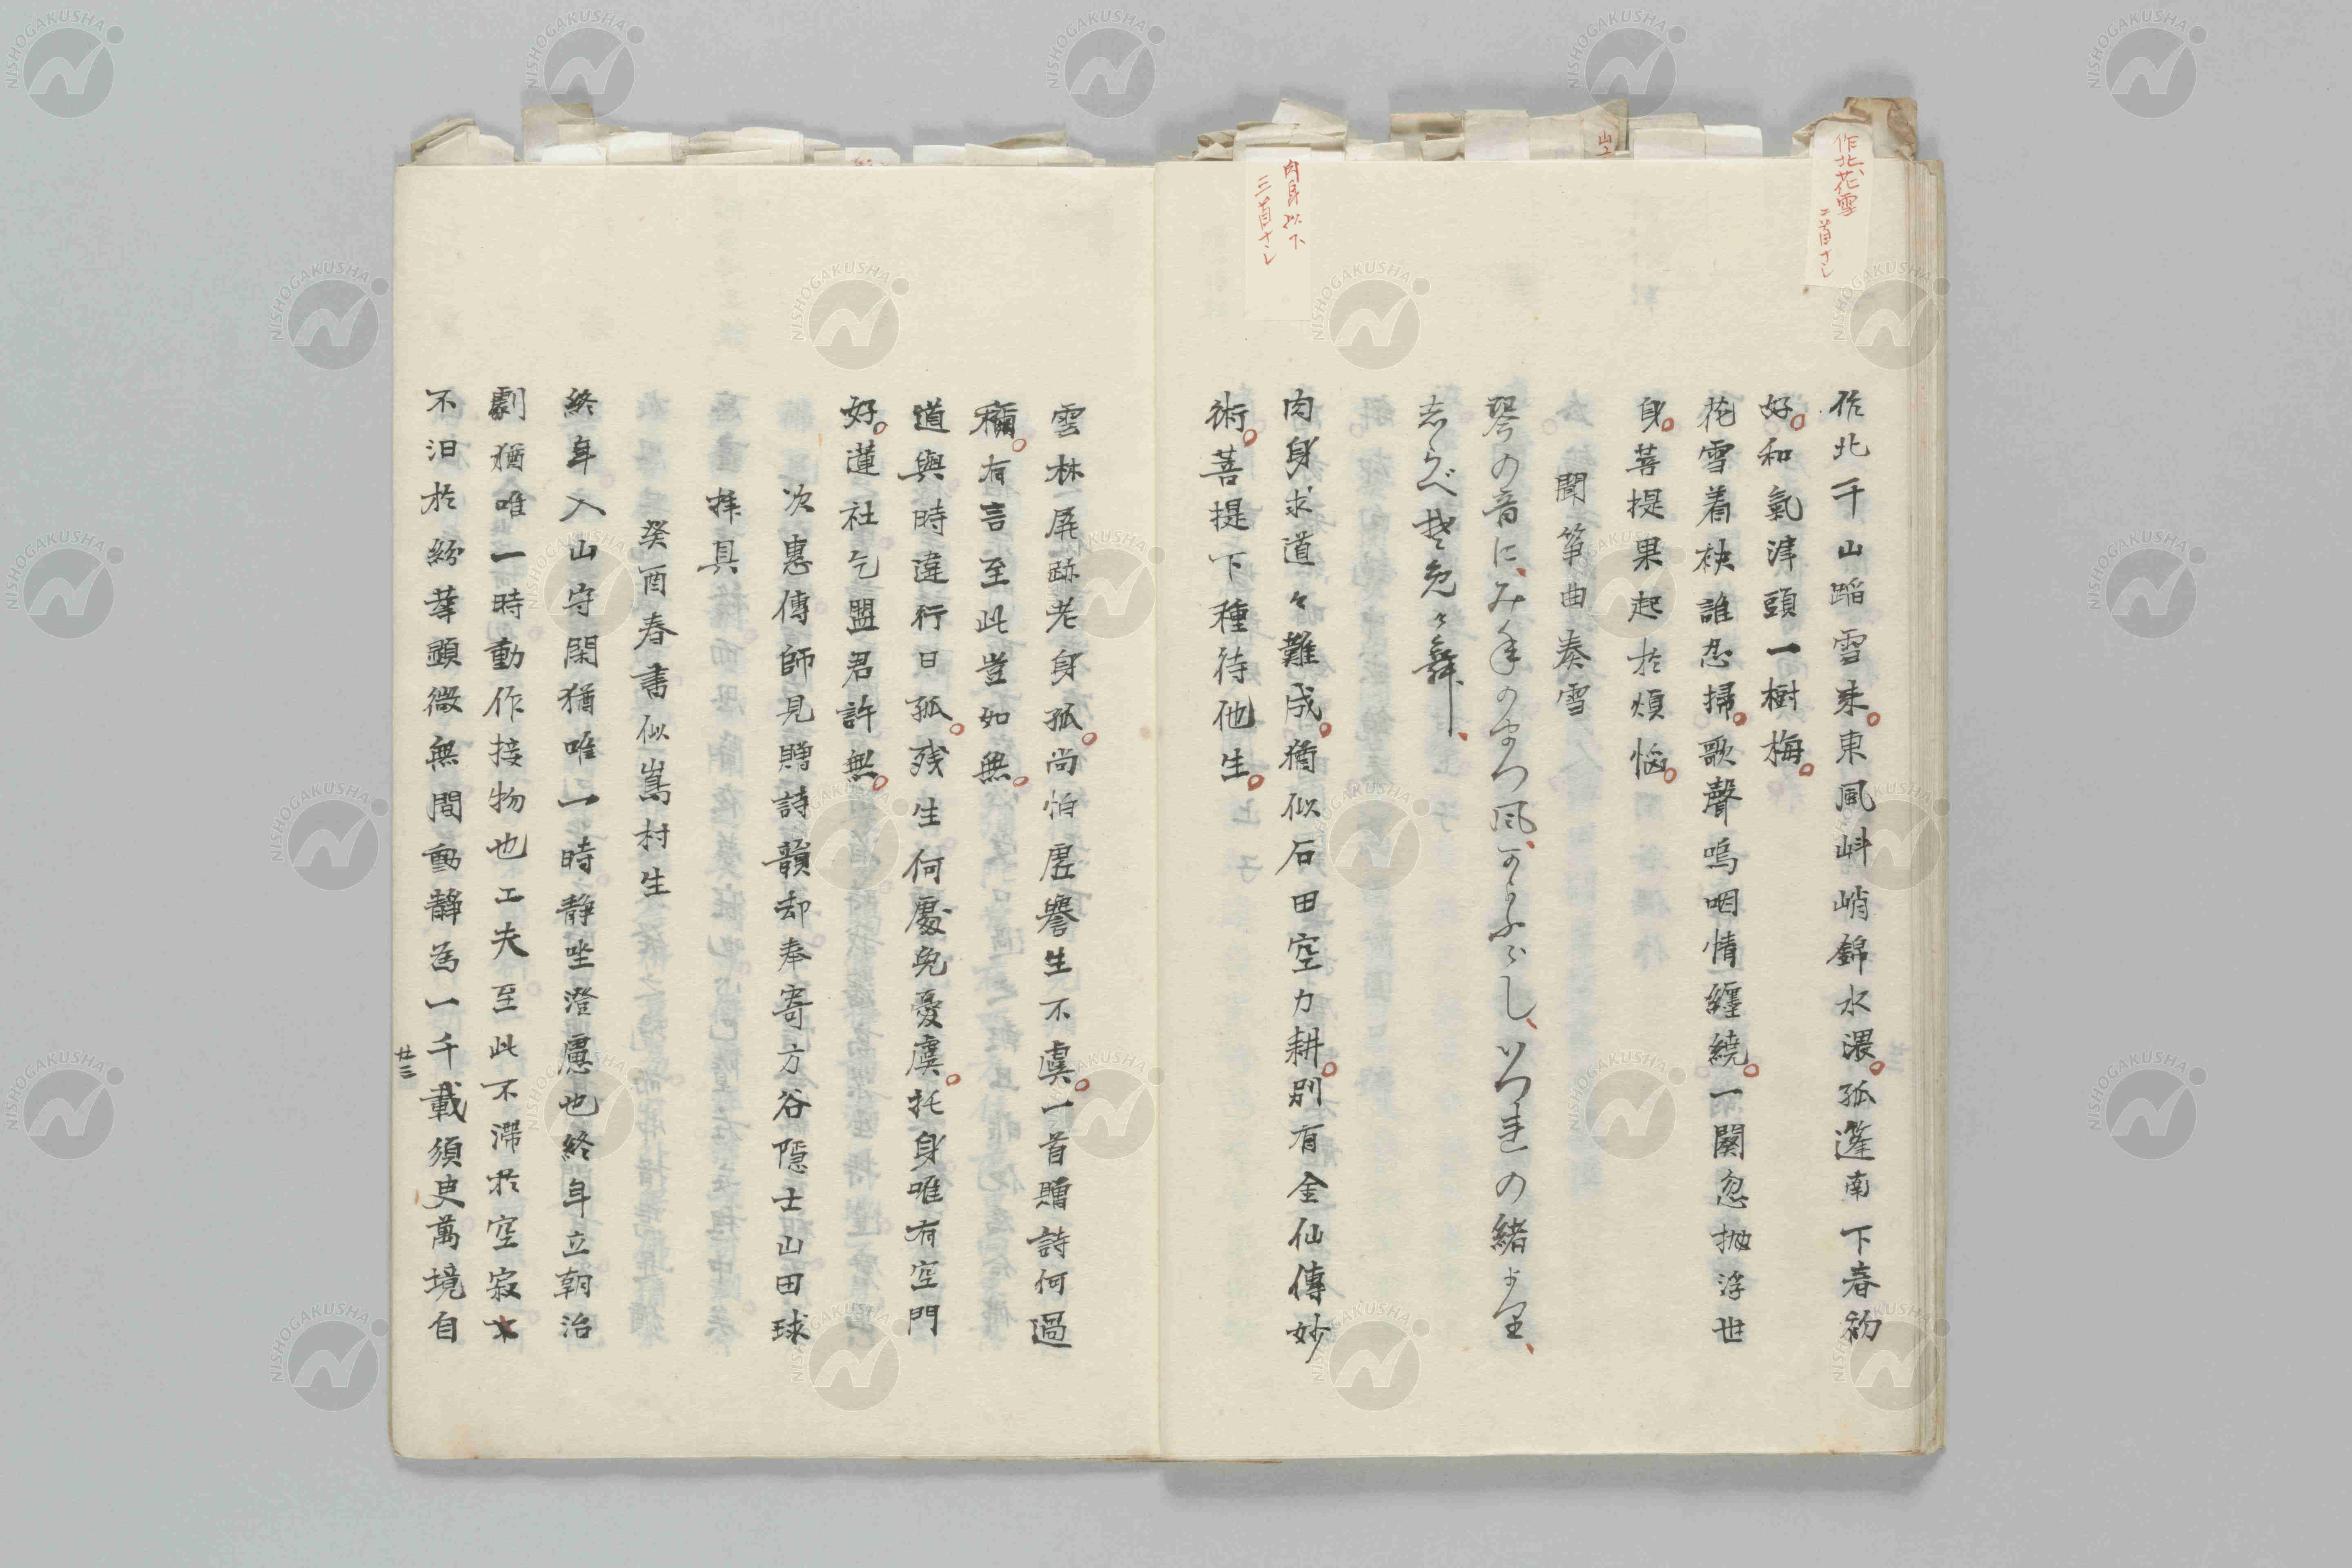 作北、花雪
二首ナシ
作北千山蹈雪来東風峭錦水濃孤蓬南下春初
好和氣津頭一樹梅
花雪着袂誰忍掃歌聲嗚咽情纏繞一関忽抛浮世
身菩提果起於煩惱
聞箏曲奏雪
琴の音にみ年のまつ風かよふらしいつれの緒より
しらべそめけむ
肉身以下
三首ナシ
肉身求道々難成猶似石田空力耕別有金仙傳妙
術菩提下種待他生
雲林屏跡老身孤尚怕虚譽生不虞一首贈詩何過
稱有言至此豈如無
道與時違行日孤残生何處免憂虞托身唯有空門
好蓮社乞盟君許無
次惠傳師見贈詩韻却奉寄方谷隱士山田球
拝具
癸酉春書似嵩村生
終年入山守閑猶唯一時静坐澄慮也終年立朝治
劇猶唯一時動作接物也工夫至此不滞於空寂
不汨於紛華顕微無間動静為一千載須臾萬境自
廿三
NISHOGAKUSHA